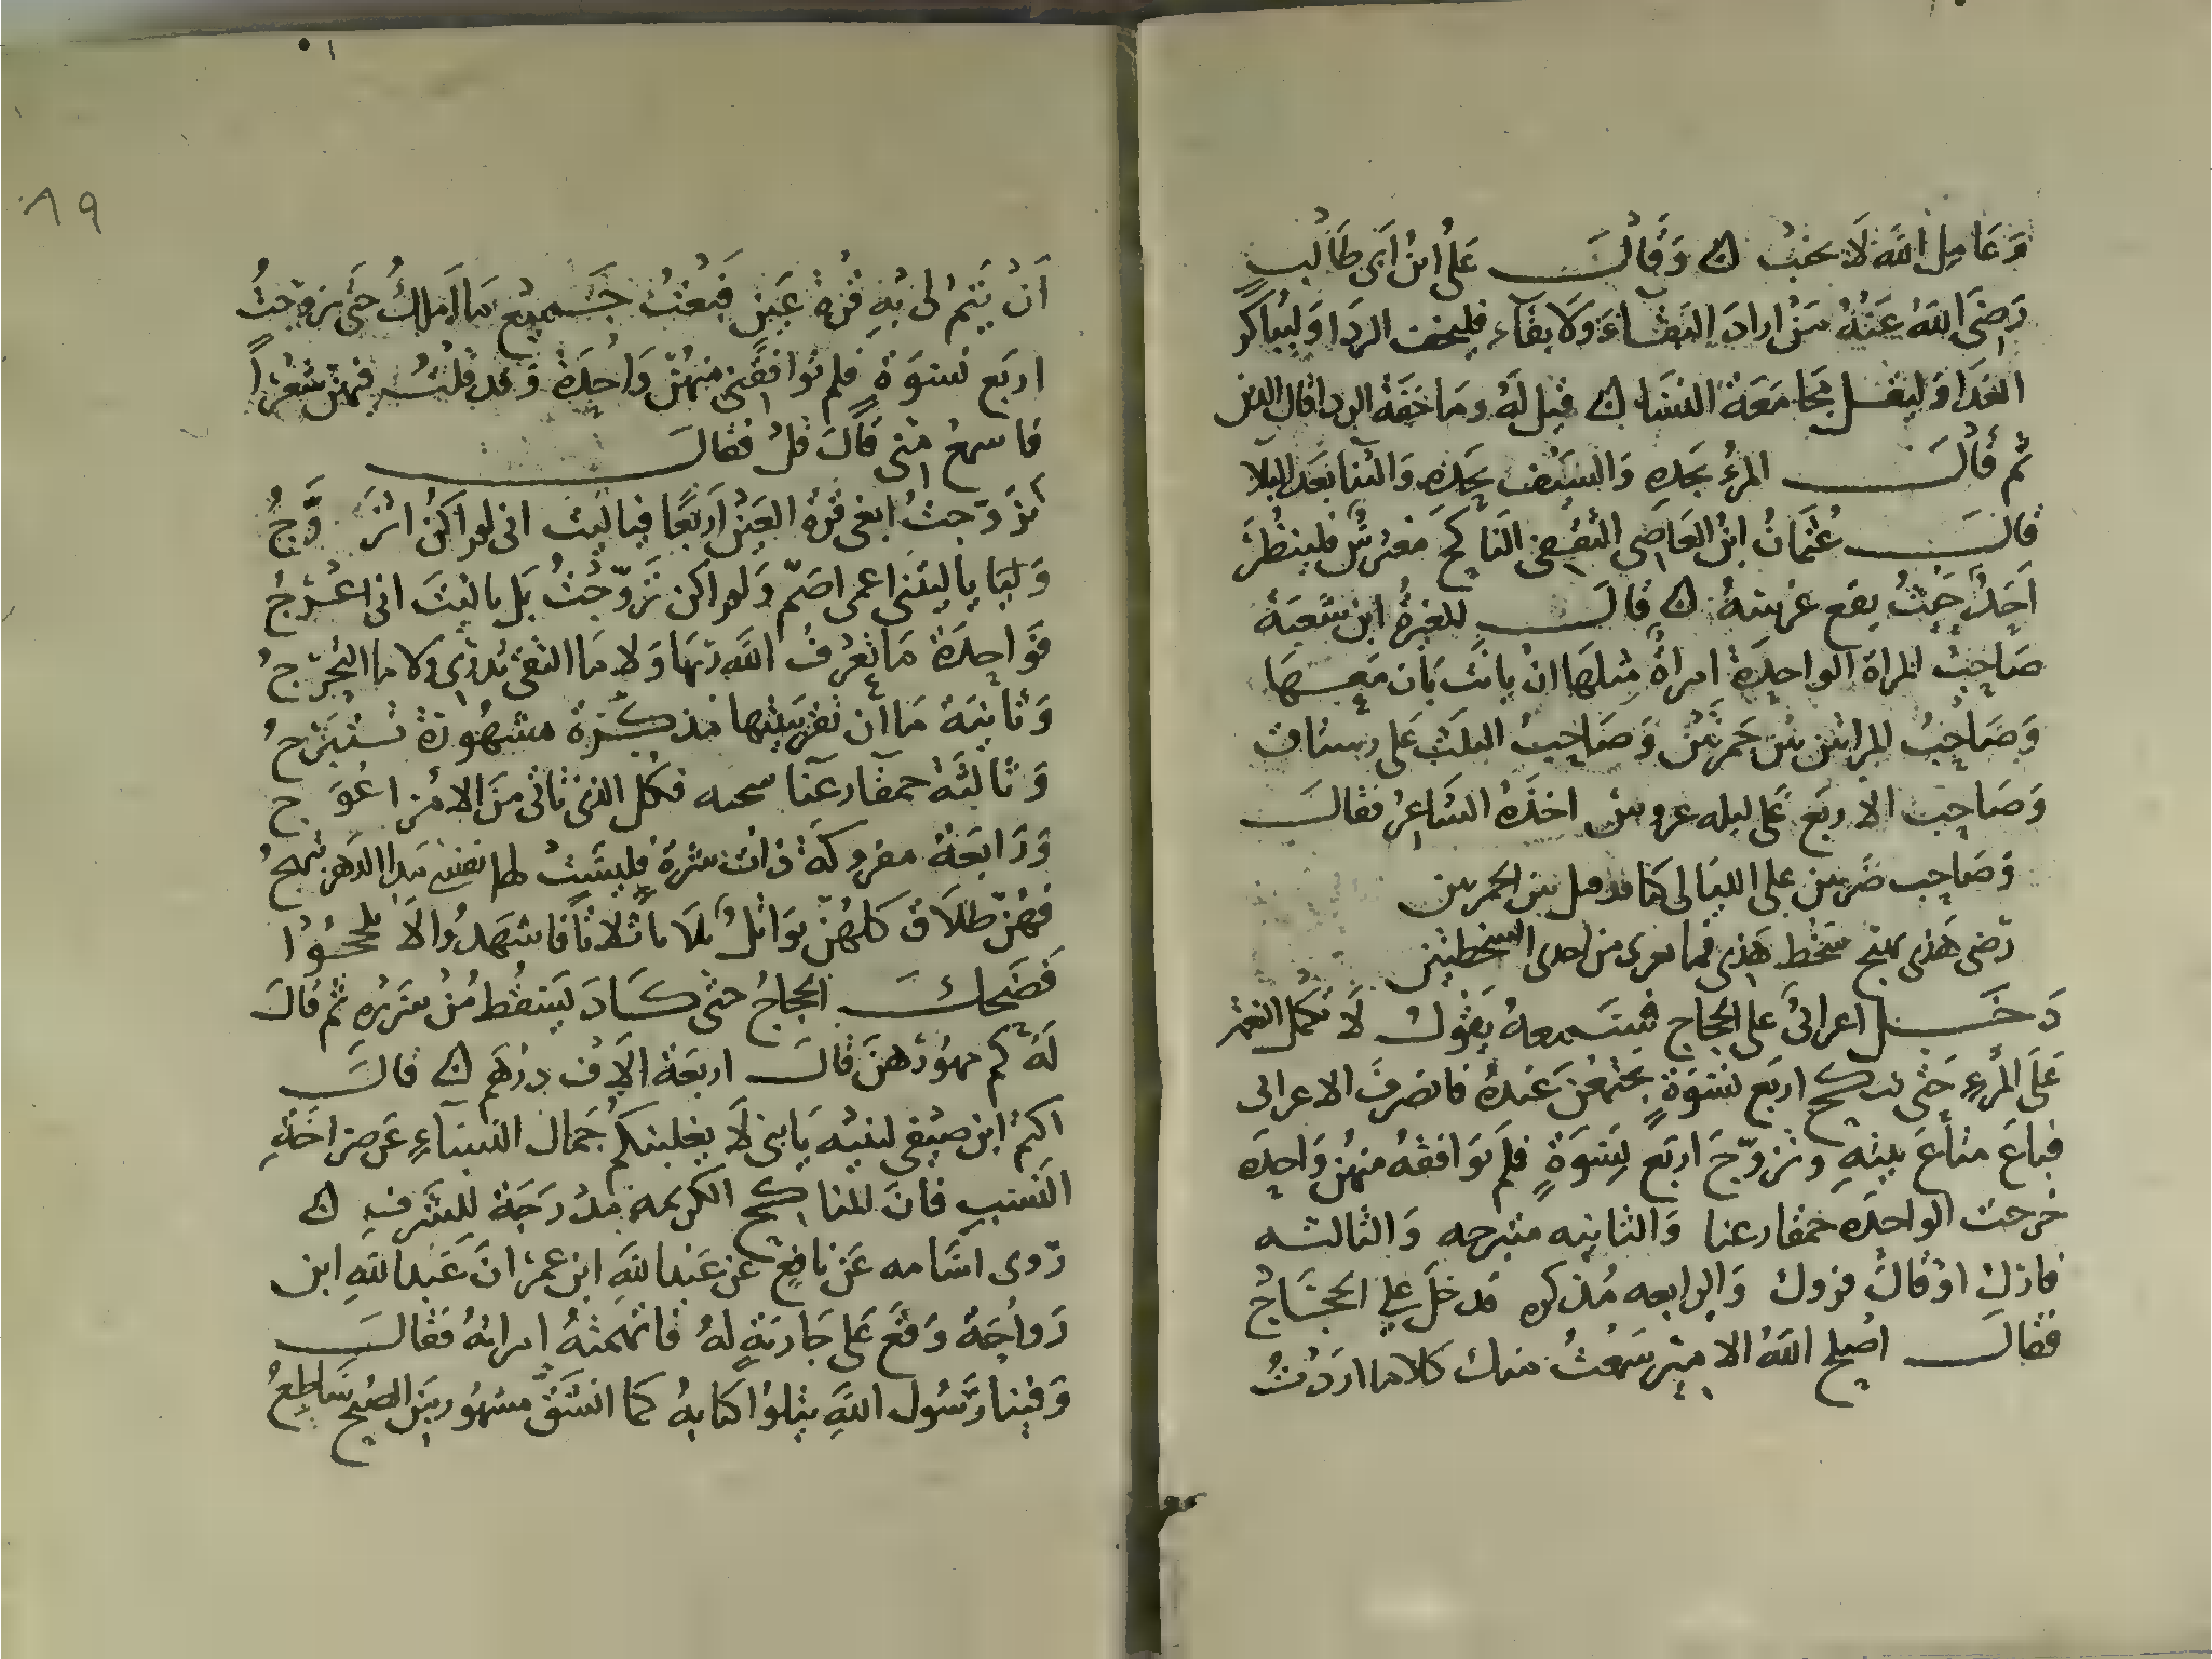 وَعَامِل الله لَا يخيب ۞ وَقَالَ عَلى ابنُ ابَى طَالب
رَضىَ الله عَنْهُ مَنْ ارادَ البَقاءَ وَلَا بقآء فليخف الردَا وَليُباكر
الغدَا وَليقل مجَامَعَة النسَا ۞ قيل لَهُ ومَا خفَة الردا قال الدين
ثم قَالَ المرءُ بجَدهِ وَالسَيْف بحَدهِ وَالثنا بَعد البَلا
قالَ عُثمَانُ ابنُ العَاصى الثقفى الناكحُ مغترسٌ فلينظرَ
احَدٌ حَيثُ يقع غرسهُ ۞ قالَ المغيرةُ ابن شعبَة
صَاحِبُ المراة الواحِدَة امراةٌ مثلهَا ان بانَت بَان مَعهَا
وَصَاحِبُ المراتين بَين جَمرتَين وَصَاحِبُ الثلَث عَلى رستاق
وَصَاحِب الاربَع عَلى ليله عروسٌ اخذَهُ الشاعِرُ فقالَ
وَصَاحِب ضرتين على الليَالى كما بين الجمرتين
رَضى هَذى يهيج سَخط هَذى فما من احدى السخطتين
دَخَل اعرابىٌ عَلى الحجاج فسَمعهُ يَقُول لَا تكمل النعَم
عَلَى المرءِ حَتى ينكح اربَع نسْوَةٍ يجتَمعْنَ عندهُ فانصَرفَ الاعرابى
فباعَ متاعَ بيتهِ وتزوّجَ اربَع نِسْوَةٍ فلم توَافقهُ منهُن وَاحِدَه
خرجت الواحدَه حمقا رعنا وَالثانيه متبرجه وَالثالثه
فارك اوْ قالَ فروك وَالرابعه مُذكره فدخَلَ على الحجَّاج
فقالَ اصْلح اللهُ الامير سَمعتُ منك كلاما اردْتُ
١٩
اَنْ يَتمَ لى بُهِ قُرة عَين فبَعْتُ جَميع مَا املكُ حَتى تزوجتُ
اربَع نسْوَةٍ فلم توَافقنى منهُنّ وَاحِدَة وَقد قلتُ فيهنّ شعْراً
فاسمعْ منى قالَ قلْ فقالَ
تزَوّجتُ ابغى قرة العَين اَربَعًا فياليت انى لم اكنْ اتزَوَّجُ
وَليا ياليتنى اعمى اصَمّ وَلم اكن تزَوّجْتُ بَل ياليتَ انى اعْرَجُ
فوَاحِدَة مَا تعرفُ اللهَ ربّهَا وَلا مَا التقى تدْرى ولا ما التحَرّجُ
وَثانيَة مَا ان تقر ببيتها مذكَّرة مشهُورة تتبَرّجُ
وَثالثَة حمقآ رعنَا فكل الذى تاتى مَن الامْر اعْوَج
وَرَابعَة مفروكَة ذات شرة فليسَت لها نفس مَدا الدَهر تبهجُ
فهُنّ طلَاق كلهُنّ بوَائنٌ ثلاثاً فاشهدُوا الاَ تلجلجُوا
فضَحكَ الحجاجُ حَتى كَادَ يَسقُط منْ سَريره ثم قالَ
لَهُ كم مهوُرهنَ قالَ اربَعة الاَف دِرْهَم ۞ قالَ
اكثمُ ابن صَيْفى لبنيه يَا بنى لَا يغلبنكم جَمال النسَاءِ عَن صرَاحَةِ
النَسَبِ فانَ المناكح الكريمه مَدْرَجَة للشرفِ ۞
رَوى اسَامه عَن نافعٍ عَن عَبد اللهِ ابن عمرْ انَّ عَبد اللهِ ابن
رَواحَة وَقعَ عَلى جَاريَةٍ لهُ فاتهمتهُ امراتهُ فقالَ
وَفينا رَسُول اللهِ يتلوُا كتابهُ كما انشَقّ مشهُور مَن الصُبح سَاطِعُ